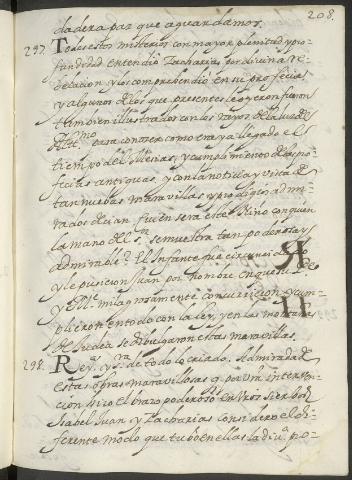 208.
dadera paz que aguardamos.
297. Todos estos misterios con mayor plenitud y pro-
fundidad entendio Zacharias por divina re-
belacion y los comprehendio en su profecia
y algunos de los que presentes le oyeron fueron
tambien illustrados con los rayos de la luz de
Altmo para conozer como era ya llegado el
tiempo del Messias, y cumplimiento de las pro-
fecias antiguas, y con la noticia y vista de
tan nuebas maravillas y prodigios admi-
rados decian quien sera este Niño con quien
la mano del Sr. se muestra tan poderosa y
admirable? El Infante fue circuncidado
y le pusieron Juan por nombre en que su
y Me milagrosamente convinieron y cum-
plieron en todo con la ley, y en las montañas
de Judea se divulgaron estas maravillas.
298. Reya. y Sra. de todo lo criado. Admirada de
estas obras maravillosas q. por vra. interse-
cion hizo el brazo poderoso en vros sierbos
Isabel Juan y Zacharias considero el di-
ferente modo que tubo en ellas la diva. pro-